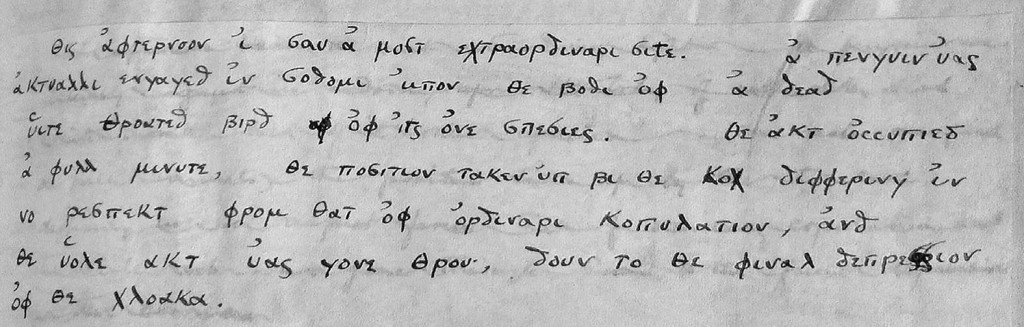 θις ἀφτερνοον ἰ σαυ ἀ μοστ εχτραορδιναρι σιtε. ἀ πενγυιν ὐας
ἀκτυαλλι ενγαγεδ ἰν σοδομι ὐπον θε βοδι ὀφ ἀ δεαδ
ὑιτε θροατεδ βιρδ ὀφ ἰτς ὀνε σπεσιες. θε ἀκτ ὀσσυπιεδ
ἀ φυλλ μινυτε, θε ποσιτιον τακεν ὐπ βι θε κοχ διφφερινγ ἰν
νο ρεσπεκτ φρομ θατ ὀφ ὀρδιναρι κοπυλατιον, ἀνδ
θε ὑολε ακτ ὐας γονε θρου, δουν το θε φιναλ δεπρεσσιον
ὀφ θε χλοακα.